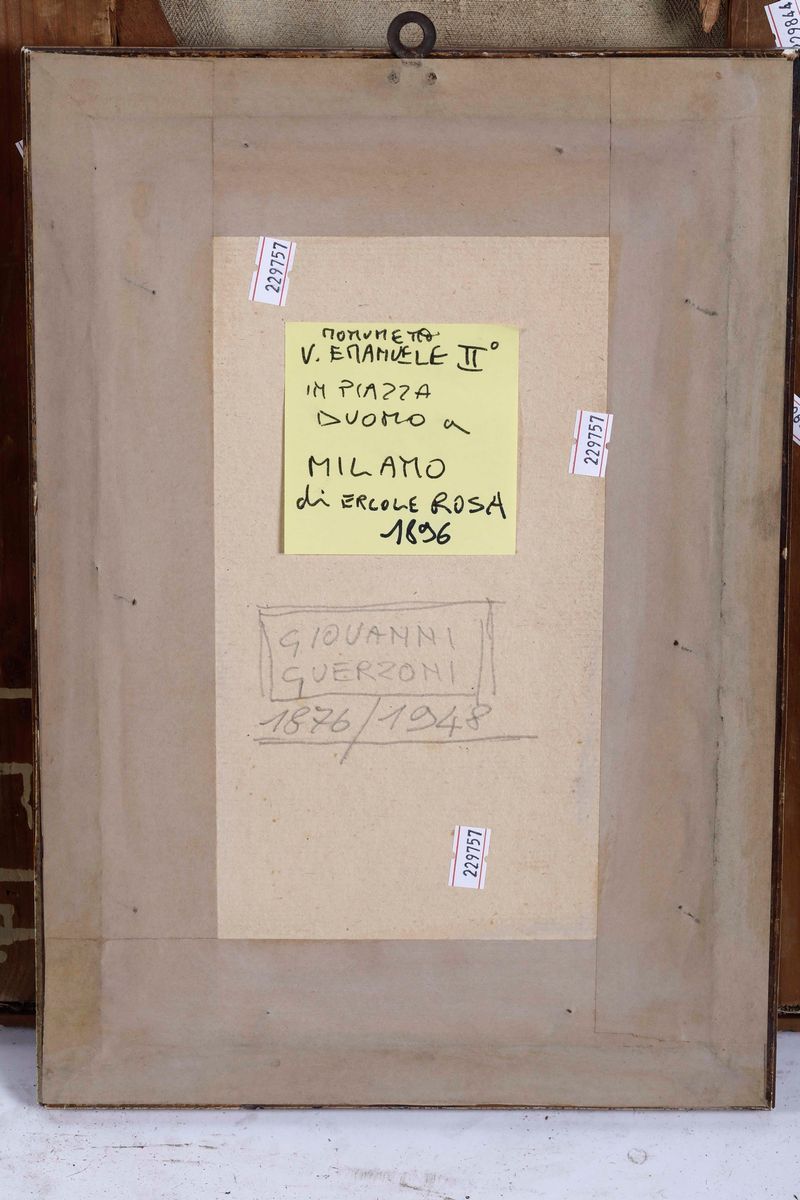 229757
MONUMETO
V. EMANUELE II°
IN PIAZZA
DUOMO a
MILANO
di ERCOLE ROSA
1896
229757
GIOVANNI
GUERZONI
1876/1948
229757